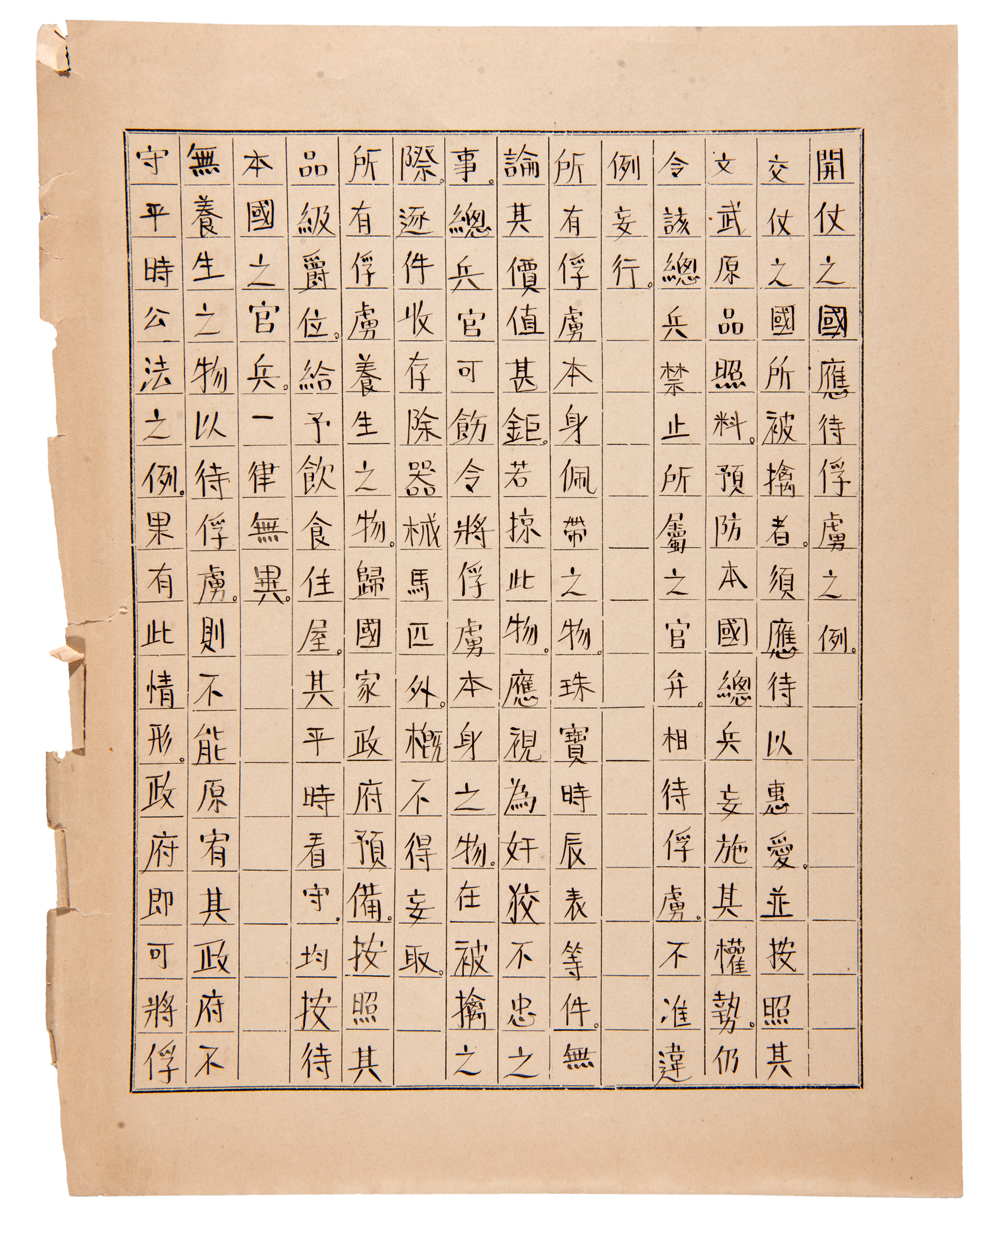 開仗之國應待俘虜之例。
交仗之國所被擒者。須應待以惠愛。並按照其
文武原品照料。預防本國總兵妄施其權勢。仍
令該總兵禁止所屬之官弁。相待俘虜。不准違
例妄行。
所有俘虜本身佩帶之物。珠寶時辰表等件。無
論其價值甚鉅。若掠此物。應視為奸狡不忠之
事。總兵官可飭令將俘虜本身之物。在被擒之
際。逐件收存除器械馬匹外。概不得妄取。
所有俘虜養生之物。歸國家政府預備。按照其
品級爵位。給予飲食住屋。其平時看守。均按待
本國之官兵。一律無異。
無養生之物以待俘虜。則不能原宥其政府不
守平時公法之例。果有此情形。政府即可將俘